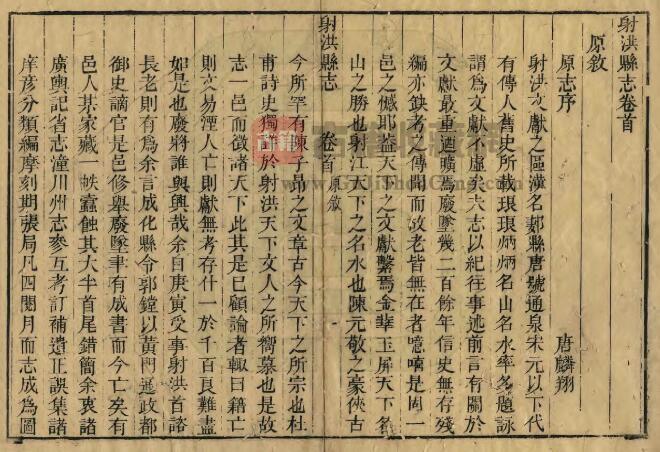 射洪縣志卷首
原敘
原志序
唐麟翔
射洪文獻之區漢名郪縣唐號通泉宋元以下代
有傳人舊史所載琅琅炳炳名山名水率多題詠
謂爲文獻不虛矣夫志以紀往事述前言有關於
文獻最重迺曠焉廢墜幾二百餘年信史無存殘
編亦缺考之傳聞而故老皆無在者噫嘻是固一
邑之憾耶葢天下之文獻繫焉金華玉屏天下名
山之勝也射江天下之名水也陳元敬之豪俠古
射洪縣志 卷首 原敘
今所罕有陳子昂之文章古今天下之所宗也杜
甫詩史獨 於射洪天下文人之所嚮慕也是故
志一邑而徵諸天下此其是已顧論者輙曰籍亡
則文易湮人亡則獻無考存什一於千百良難盡
如是也廢將誰與興哉余自庚寅受事射洪首諮
長老則有爲余言成化縣令郭鏜以黃門通政都
御史謫官是邑修舉廢墜聿有成書而今亡矣有
邑人某家藏一帙蠧蝕其大半首尾錯簡余裒諸
廣輿記省志潼川州志參互考訂補遺正誤集諸
庠彥分類編摩刻期張局凡四閱月而志成爲圖